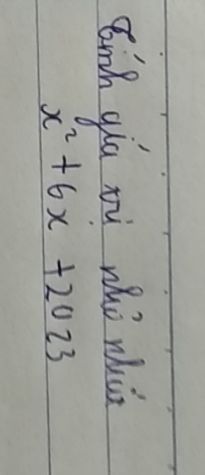 Tính giá trị nhỏ nhất
x² + 6x + 2023